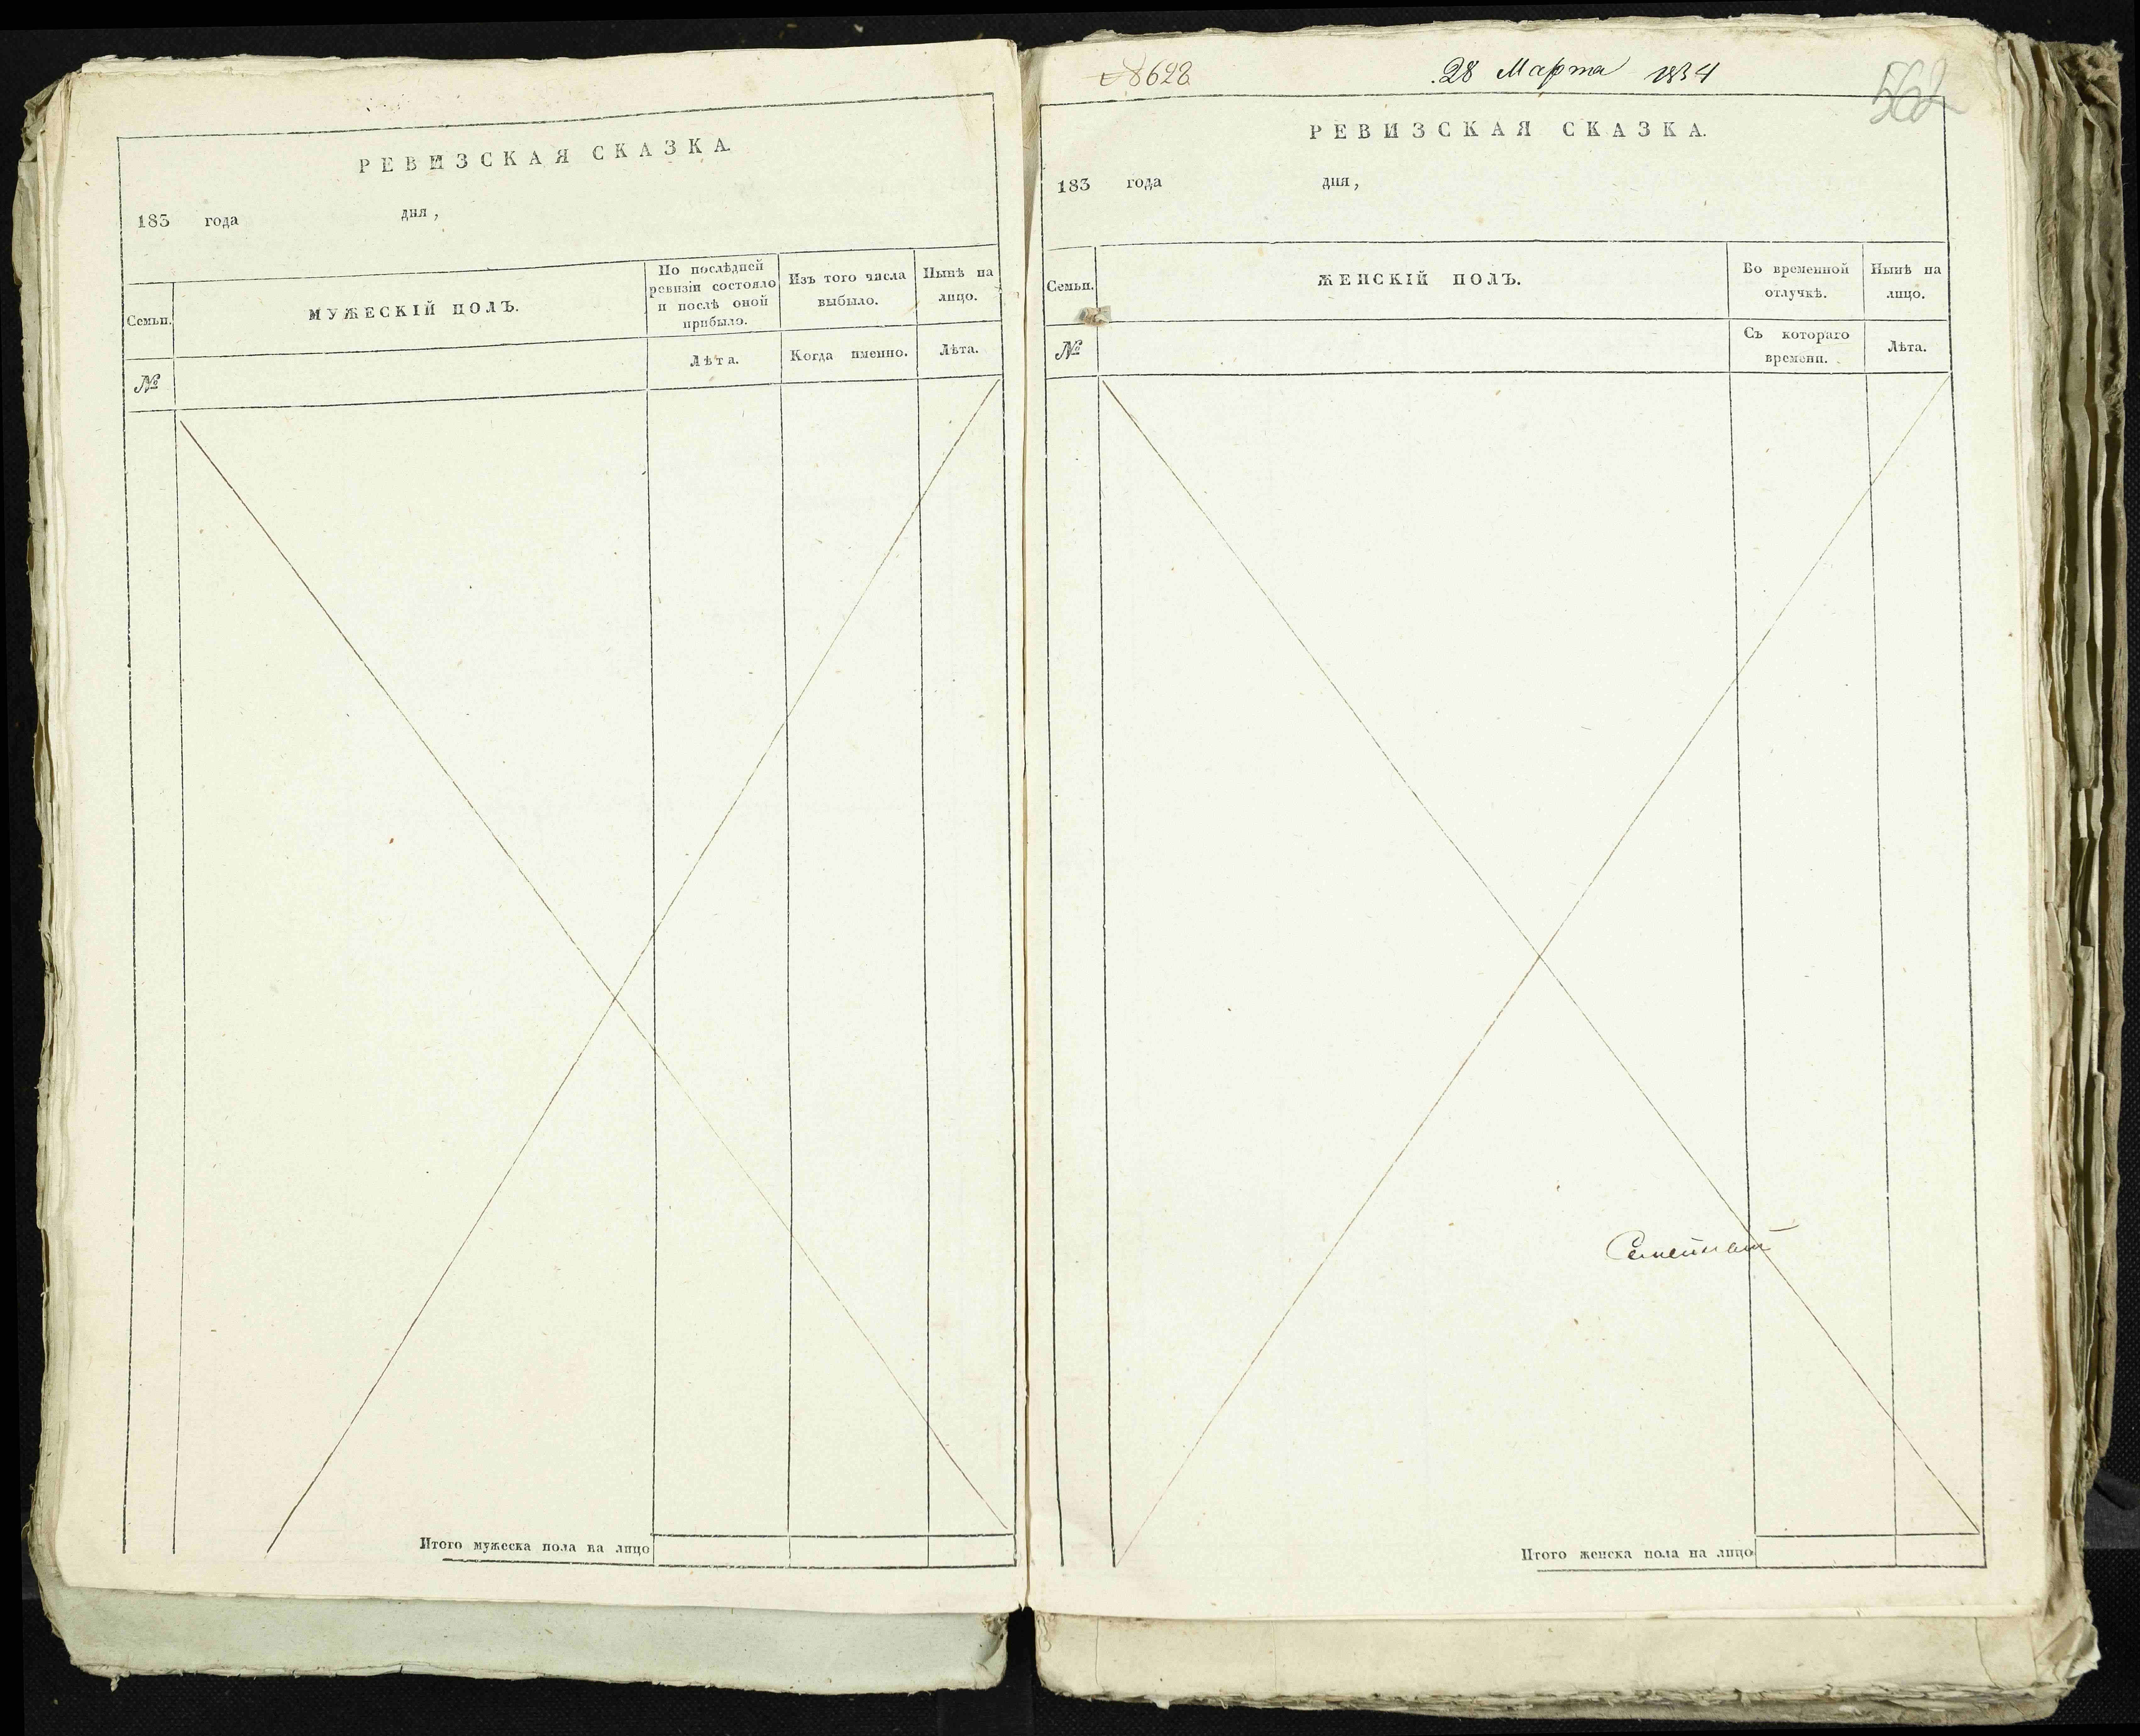 РЕВИЗСКАЯ СКАЗКА.
183 года дня,
Семьи.
МУЖЕСКІЙ ПОЛЪ.
По послѣдней ревизіи состояло и послѣ оной прибыло.
Изъ того числа выбыло.
Нынѣ на лицо.
№
Лѣта.
Когда именно.
Лѣта.
Итого мужеска пола на лицо
28 Марта 1834
РЕВИЗСКАЯ СКАЗКА.
183 года дня,
Семьи.
ЖЕНСКІЙ ПОЛЪ.
Во временной отлучкѣ.
Нынѣ на лицо.
№
Съ котораго времени.
Лѣта.
Итого женска пола на лицо